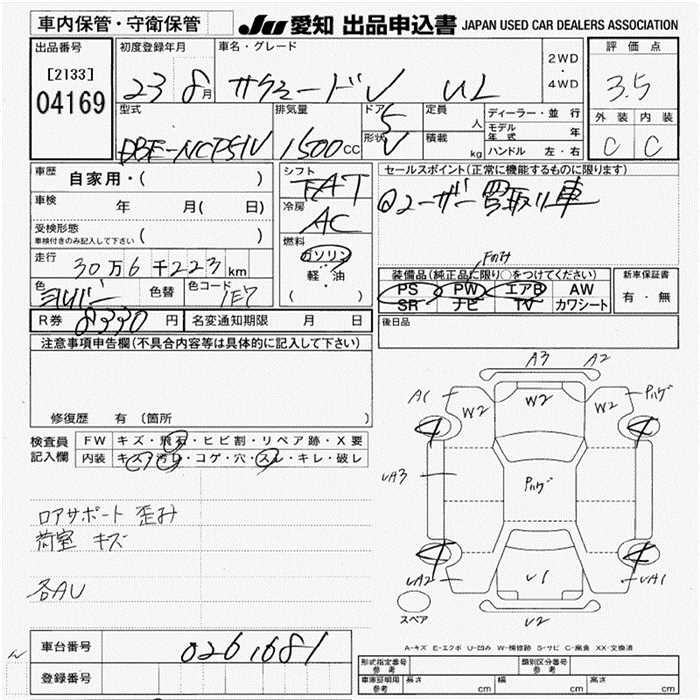 車内保管・守衛保管
JU 愛知 出品申込書 JAPAN USED CAR DEALERS ASSOCIATION
出品番号
[2133]
04169
初度登録年月
23 8月
車名・グレード
サクシードV UL
2WD
・
4WD
評価点
3.5
外装 内装
C C
型式
DBE-NCP51V
排気量
1500cc
ドア 5
形状 V
定員 人
積載 kg
ディーラー・並行
モデル年式 年
ハンドル 左・右
車歴 自家用・( )
車検 年 月( 日)
受検形態
車検付きのみ記入して下さい ( )
走行 30万6千223km
色 シルバー 色替 色コード 1E7
シフト
FAT
冷房
AC
燃料
ガソリン
軽・油
( )
セールスポイント(正常に機能するものに限ります)
@ユーザー買取り車
装備品(純正品に限り○をつけてください)
PS PW エアB AW
SR ナビ TV カワシート
新車保証書
有・無
R券 8330円 名変通知期限 月 日
後日品
注意事項申告欄(不具合内容等は具体的に記入して下さい)
修復歴 有 (箇所
検査員
記入欄
FW キズ・飛石・ヒビ割・リペア跡・X要
内装 キズ・汚れ・コゲ・穴・スレ・キレ・破レ
ロアサポート 歪み
荷室 キズ
各AU
A3 A2
A1 W2 W2 W2 Pハゲ
UA3 Pハゲ
UA2 U1 UA1
U2
スペア
A-キズ E-エクボ U-凹み W-補修跡 S-サビ C-腐食 XX-交換済
車台番号 0261681
登録番号
形式指定番号 参考
類別区分番号 参考
車庫証明用 参考 長さ cm 幅 cm 高さ cm